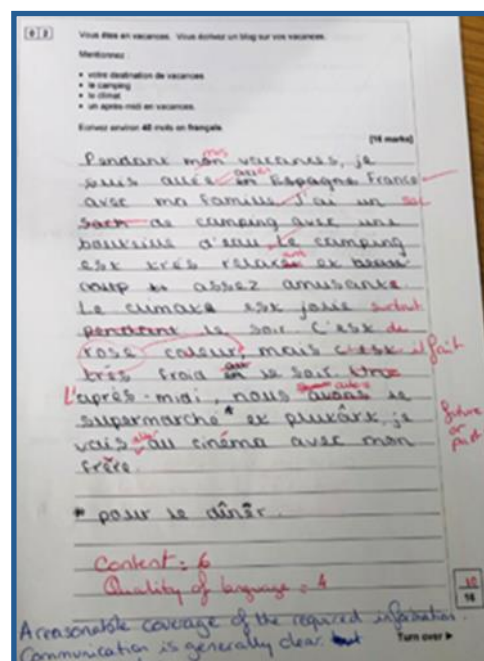 0 2
Vous êtes en vacances. Vous écrivez un blog sur vos vacances.
Mentionnez :
• votre destination de vacances
• le camping
• le climat
• un après-midi en vacances.
Ecrivez environ 40 mots en français.
[16 marks]
Pendant mon vacances, je
mes
suis allée en Espagne France
avec ma famille. J'ai un sac
de camping avec une
bouteille d'eau. Le camping
est très
coup assez amusante.
Le climate est jolie surtout
pendant le soir. C'est de
rose couleur, mais c'est il fait
très froid le soir.
L'après-midi, nous avons le
supermarché * et plutârt, je
vais au cinéma avec mon
future
or
past
frère.
* pour le dînêr.
Content : 6
Quality of language : 4
10
16
A reasonable coverage of the required information.
Communication is generally clear. but
Turn over ►